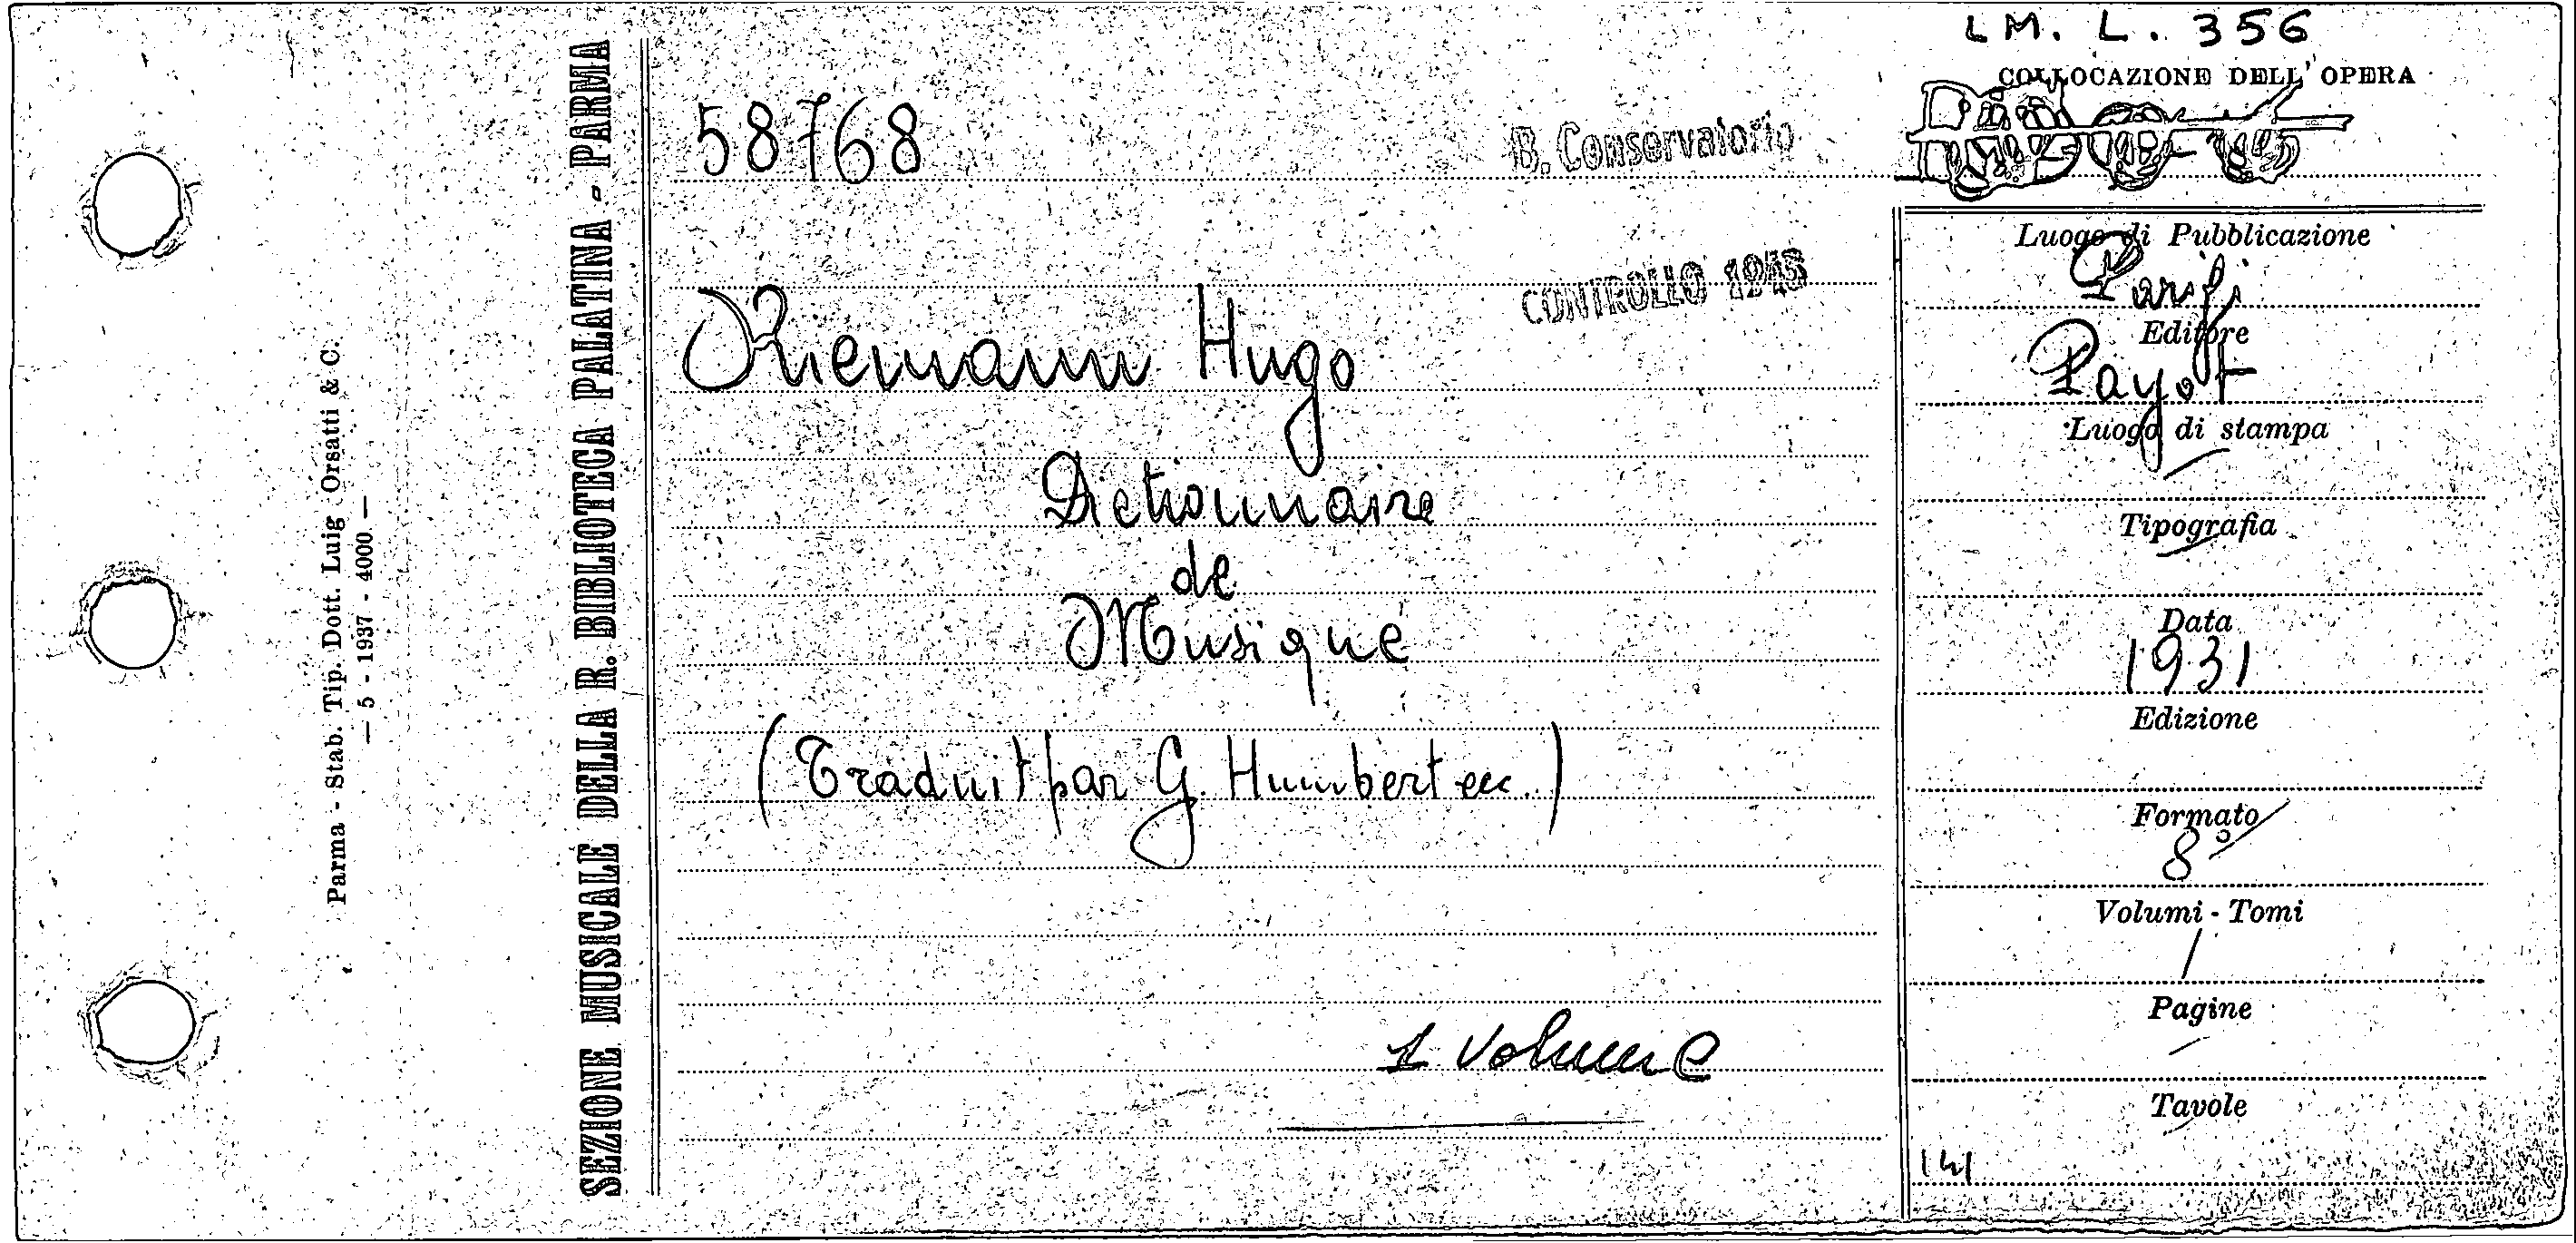 LM. L. 356
COLLOCAZIONE DELL' OPERA
58768
B. Conservatorio
CONTROLLO 1946
Riemann Hugo
Dictionnaire
de
Musique
(Traduit par G. Humbert ecc.)
1 Volume
Luogo di Pubblicazione
Parigi
Editore
Payot
Luogo di stampa
Tipografia
Data
1931
Edizione
Formato
8°
Volumi - Tomi
1
Pagine
Tavole
141
SEZIONE MUSICALE DELLA R. BIBLIOTECA PALATINA - PARMA
Parma - Stab. Tip. Dott. Luig Orsatti & C.
— 5 - 1937 - 4000 —